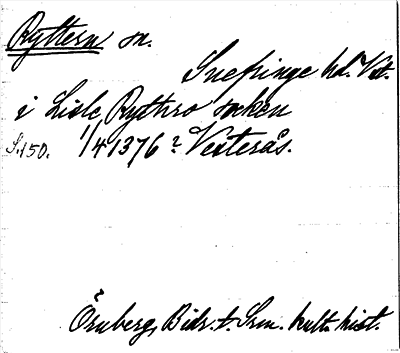 Ryttern sn.
Snefringe hd. Vst.
i Lisle Rythro soken
S.150. 1/4 1376 ? Vesterås.
Örnberg, Bidr. t. Srm. kult. hist.